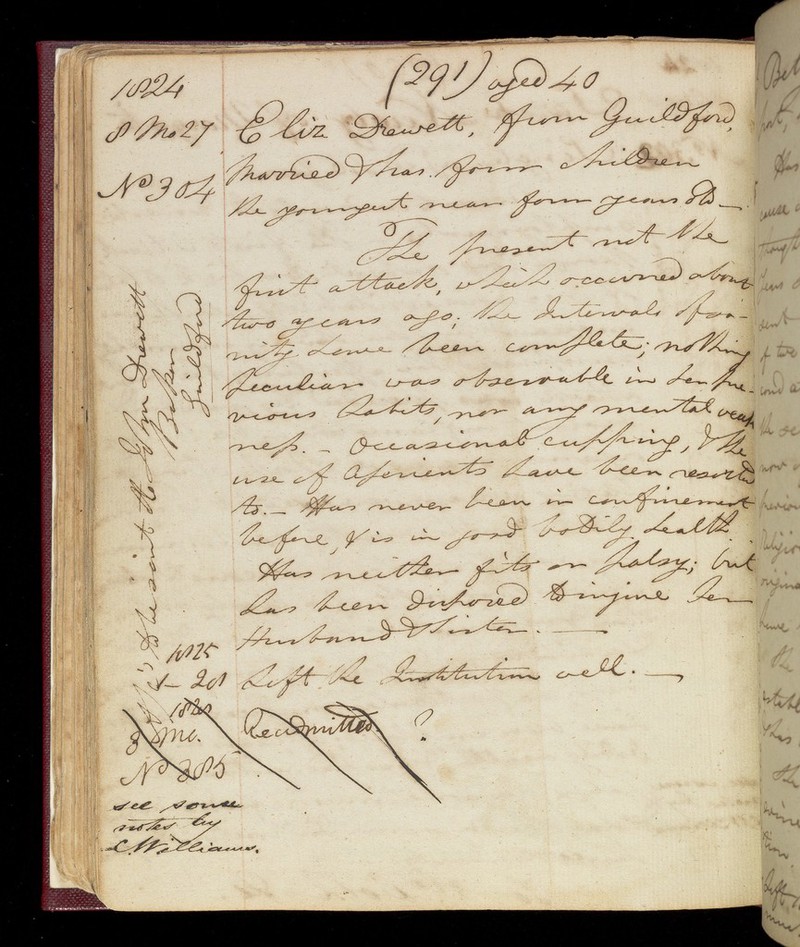 1824
(291) aged 40
8 Mo 27
Eliz Drewett, from Guildford,
No 304
Married & has four children
the youngest near four years old —
The present not the
first attack, which occurred about
two years ago; the Intervals of sa-
nity have been complete; nothing
peculiar was observable in her pre-
vious habits, nor any mental weak
ness. – Occasional cupping, & the
use of Aperients have been resorted
to. – Has never been in confinement
before, & is in good bodily health.
Has neither fits or palsy; but
has been disposed to injure her
Husband & Sister. —
to be sent to John Drewett
Baker
Guildford
1825
1 – 28
Left the Institution well. —
1828
3 Mo.
Readmitted. ?
No 385
see some
notes by
C. Williams.